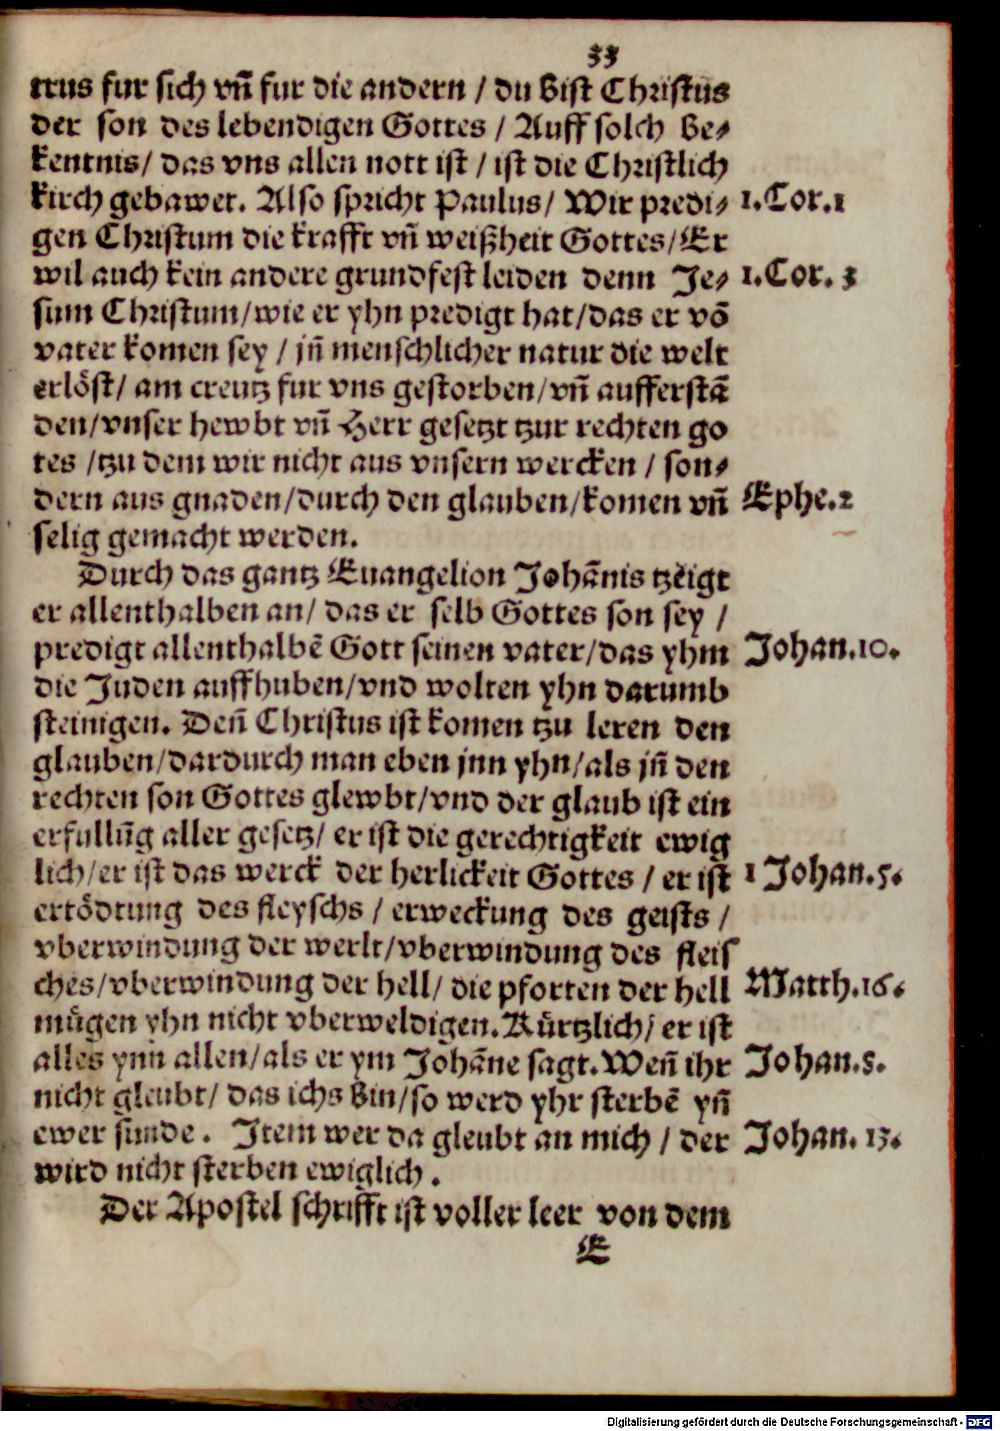 33
trus fur sich vñ fur die andern / du bist Christus
der son des lebendigen Gottes / Auff solch be⸗
kentnis/ das vns allen nott ist / ist die Christlich
kirch gebawet. Also spricht Paulus/ Wir predi⸗ 1.Cor.1
gen Christum die krafft vñ weißheit Gottes/Er
wil auch kein andere grundfest leiden denn Je⸗ 1.Cor. 3
sum Christum/wie er yhn predigt hat/das er võ
vater komen sey / jñ menschlicher natur die welt
erlöst/ am creutz fur vns gestorben/vñ aufferstã
den/vnser hewbt vñ Herr gesetzt tzur rechten go
tes /tzu dem wir nicht aus vnsern wercken / son⸗
dern aus gnaden/durch den glauben/komen vñ Ephe.2
selig gemacht werden.
Durch das gantz Euangelion Johãnis tzeigt
er allenthalben an/ das er selb Gottes son sey /
predigt allenthalbẽ Gott seinen vater/das yhm Johan.10.
die Juden auffhuben/vnd wolten yhn darumb
steinigen. Deñ Christus ist komen tzu leren den
glauben/dardurch man eben jnn yhn/als jñ den
rechten son Gottes glewbt/vnd der glaub ist ein
erfullũg aller gesetz/ er ist die gerechtigkeit ewig
lich/er ist das werck der herlickeit Gottes / er ist 1 Johan.5.
ertödtung des fleyschs / erweckung des geists /
vberwindung der werlt/vberwindung des fleis
ches/vberwindung der hell/ die pforten der hell Matth.16.
mügen yhn nicht vberweldigen. Kürtzlich/ er ist
alles ynn allen/als er ym Johãne sagt. Weñ ihr Johan.8.
nicht gleubt/ das ichs bin/so werd yhr sterbẽ yñ
ewer sunde . Item wer da gleubt an mich / der Johan. 13.
wird nicht sterben ewiglich .
Der Apostel schrifft ist voller leer von dem
E
Digitalisierung gefördert durch die Deutsche Forschungsgemeinschaft - DFG